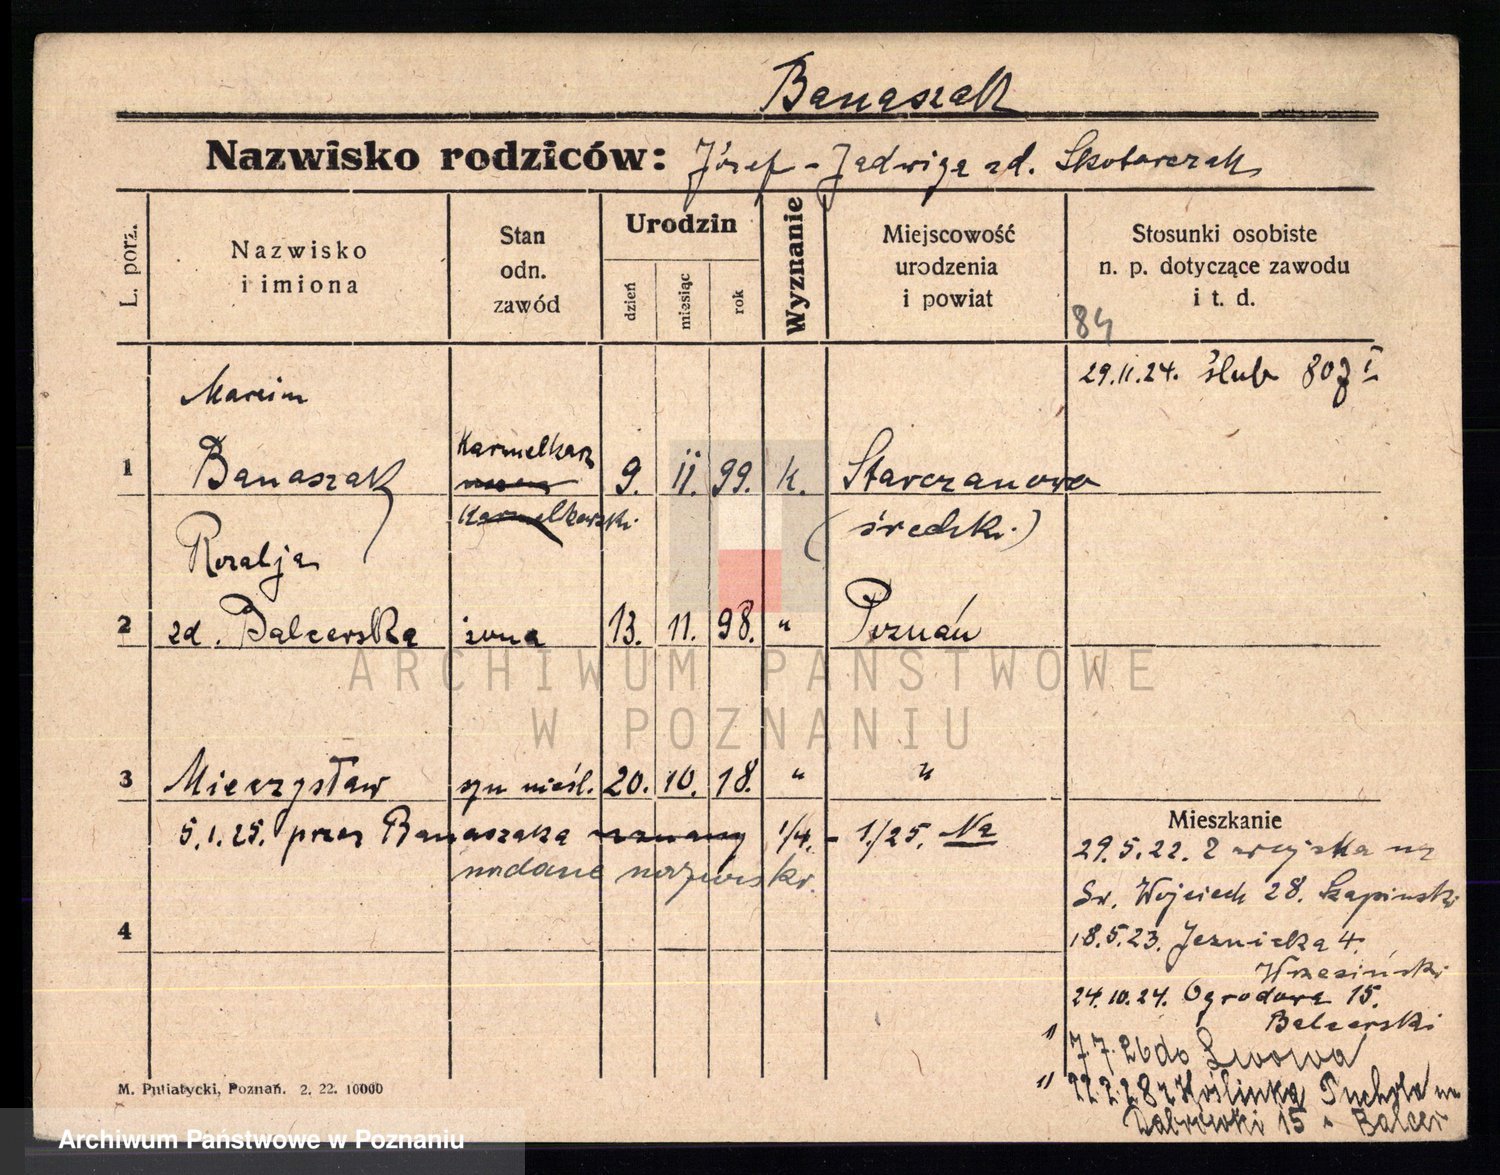 Banaszak
Nazwisko rodziców: Józef - Jadwiga zd. Skotarczak
L. porz.
Nazwisko
i imiona
Stan
odn.
zawód
Urodzin
dzień
miesiąc
rok
Wyznanie
Miejscowość
urodzenia
i powiat
Stosunki osobiste
n. p. dotyczące zawodu
i t. d.
84
29.11.24. ślub 807 I
Marcin
1 Banaszak Karmelkarz 9. 11. 99. k. Starczanowo
(średzki.)
Rozalja
2 zd. Balcerska żona 13. 11. 98. " Poznań
3 Mieczysław syn nieśl. 20. 10. 18. " "
5.1.25. przez Banaszaka 1/4. - 1./25. Na
nadane nazwisko.
4
Mieszkanie
29.5.22. z
Św. Wojciech 28. Szapiński
18.5.23. Jeznicka 4.
Wrzesiński
24.10.24. Ogrodowa 15.
Balcerski
1) 7.7.26 do Lwowa
1) 22.2.28 z Koślinka Tuchola
Dąbrówki 15 Balcer
M. Putiatycki, Poznań. 2. 22. 10000
ARCHIWUM PAŃSTWOWE
W POZNANIU
Archiwum Państwowe w Poznaniu